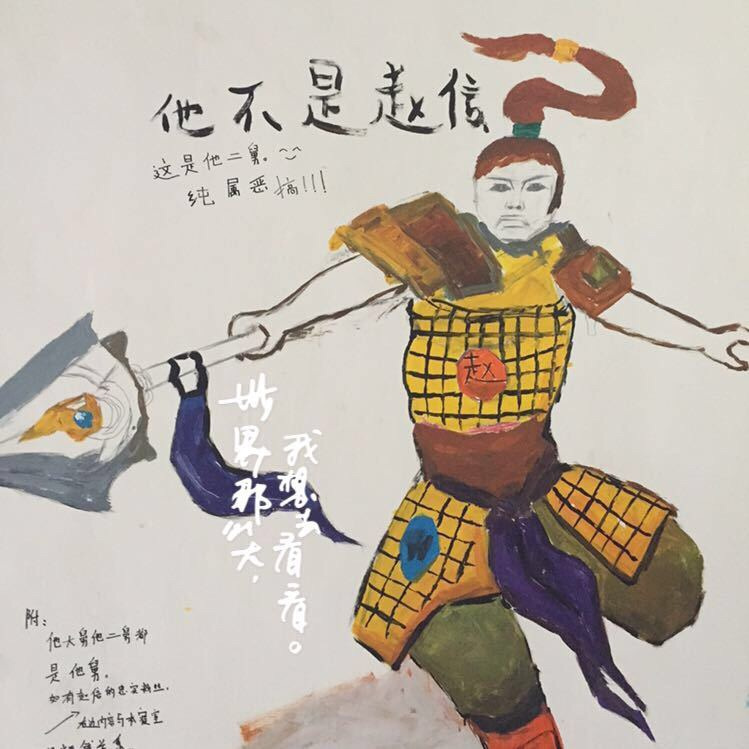 他不是赵信
这是他二舅。
纯属恶搞!!!
赵
世界那么大,
我想去看看。
附:
他大舅他二舅都
是他舅。
如有赵信的忠实粉丝。